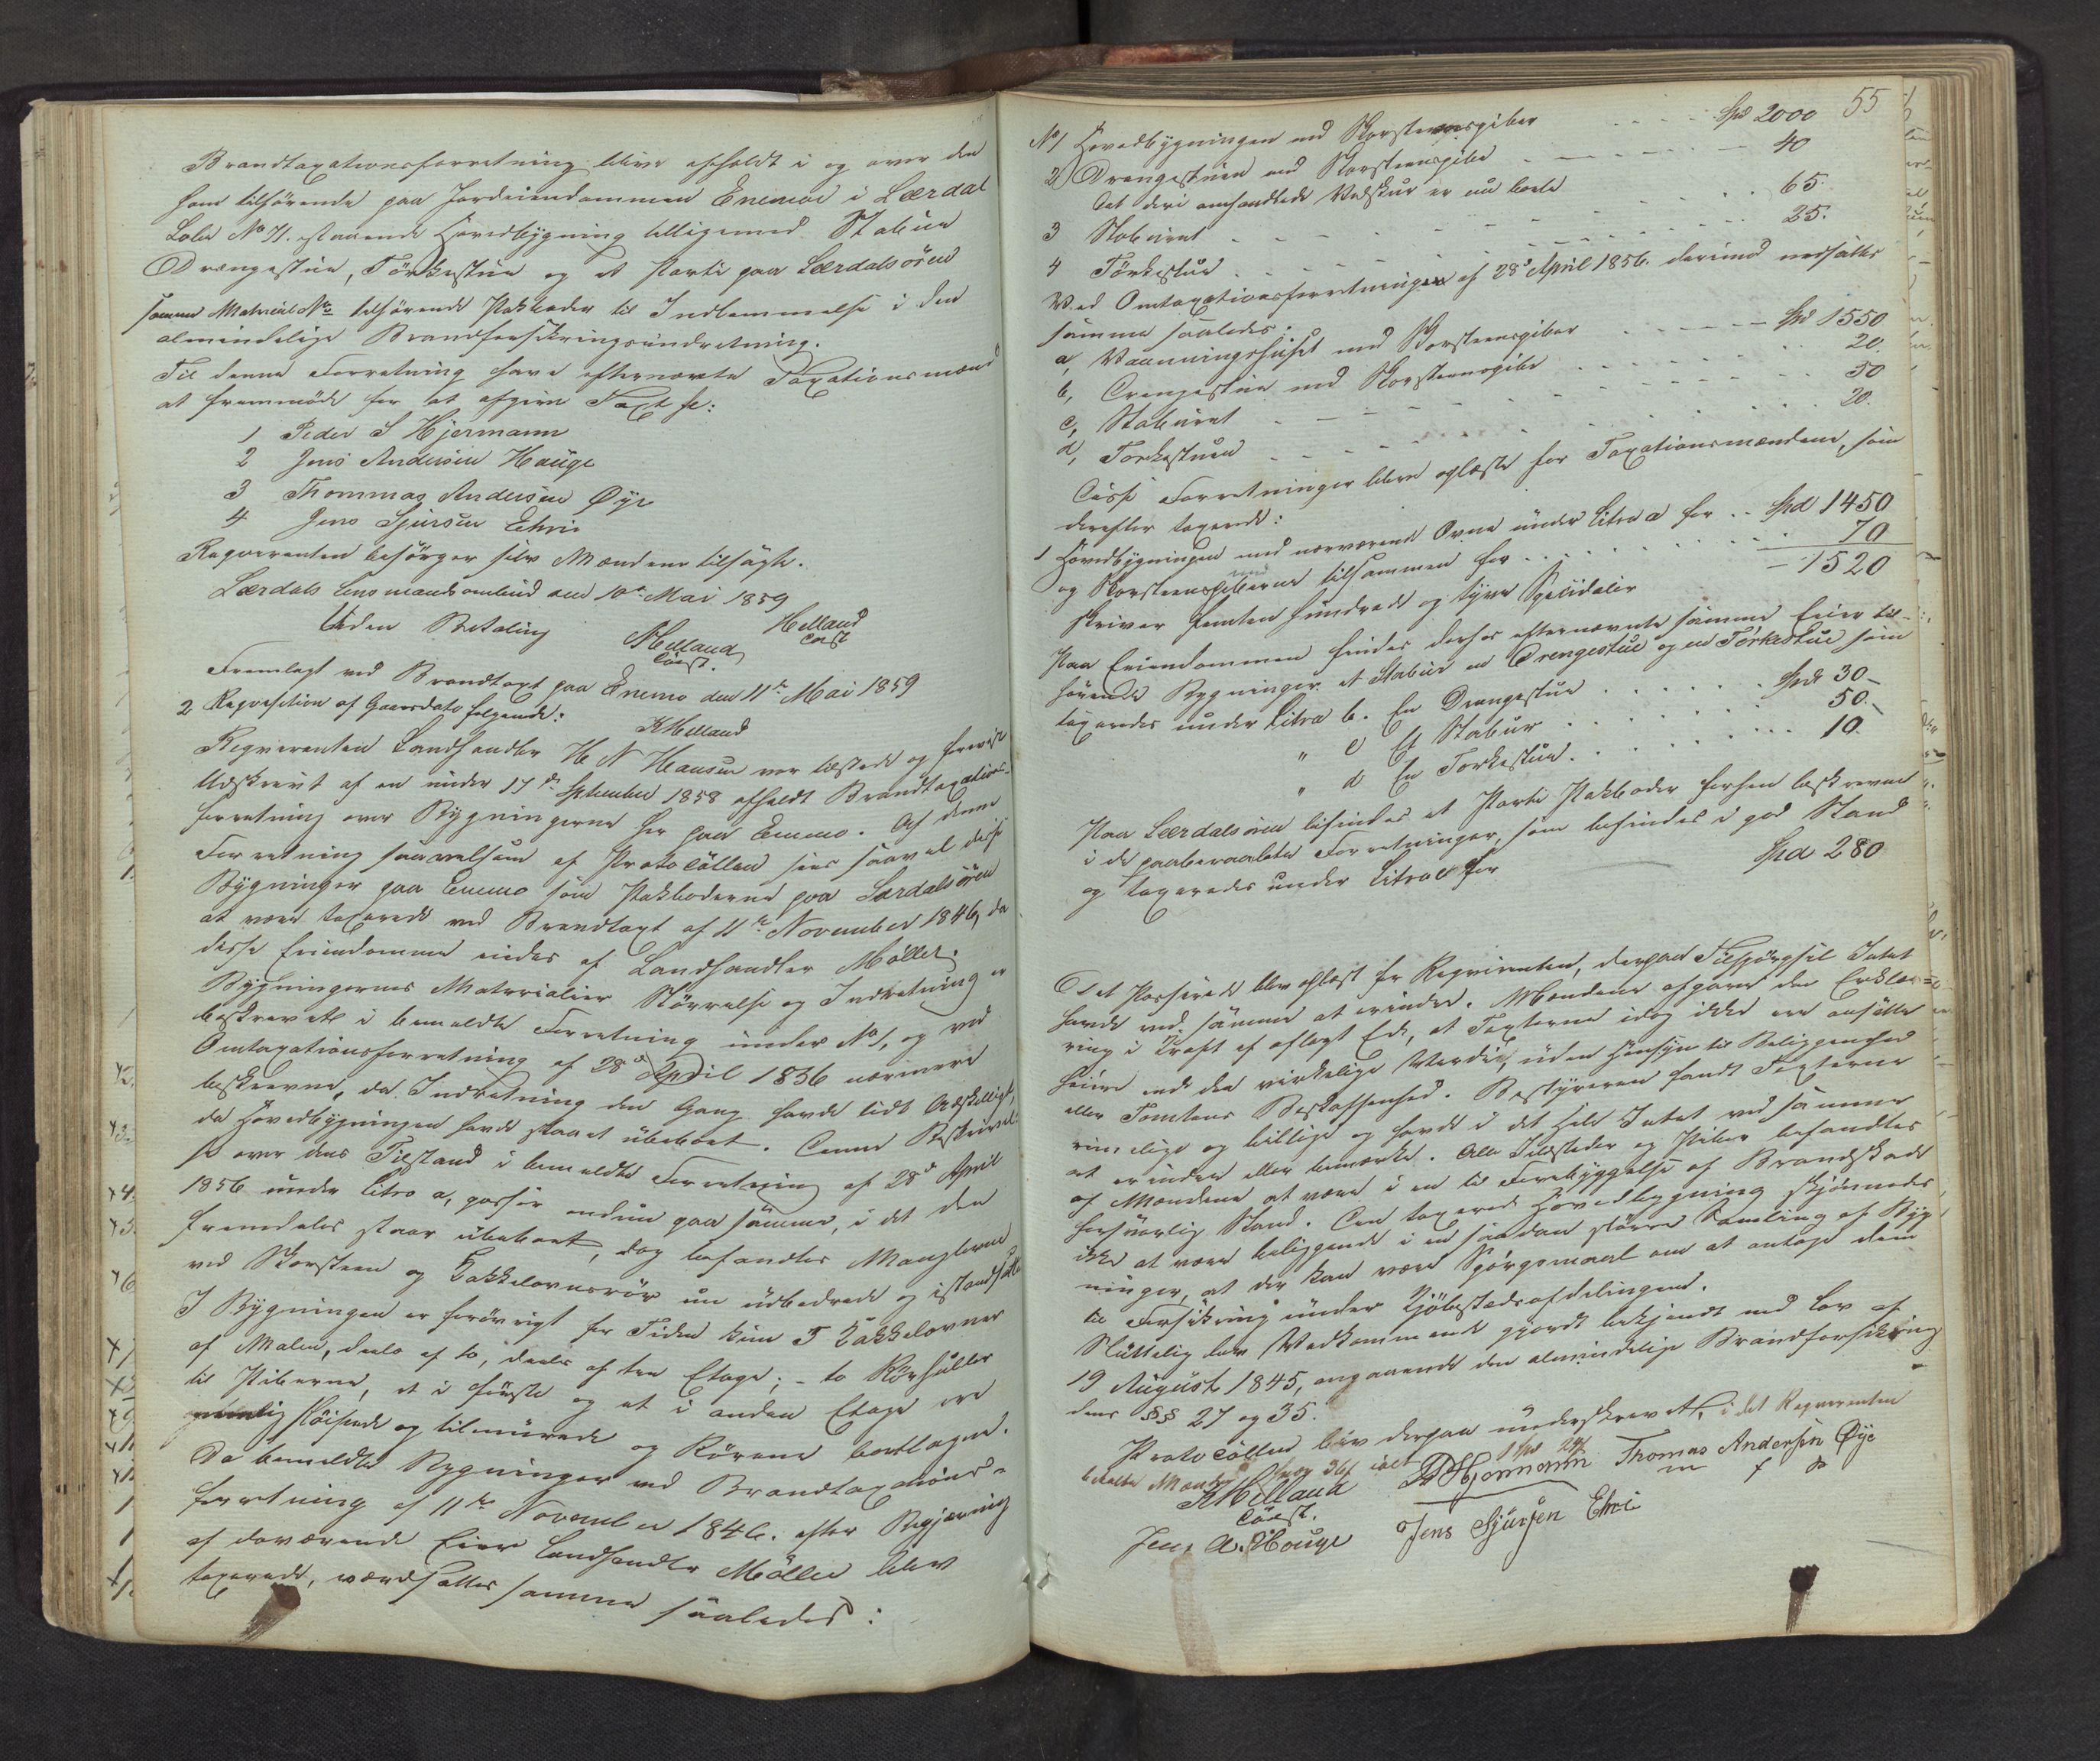 Brandtaxationsforretning bliver afholdt i og over den
ham tilhörende paa Jordeiendommen Enemoe i Lærdal
Löbe No 71. staaende Hovedbygning tilligemed Stabur
Drængestue, Törkestue og et Partie paa Lærdalsören
samme Matricul No tilhörende Pakboder til Indlemmelse i den
almindelige Brandforsikringsindretning.
Til denne Forretning have efternævnte Taxationsmænd
at fremmöde for at afgive Taxt sc:
1 Peder S Hjermann
2 Jens Andersen Hauge
3 Thommas Andersen Øye
4 Jens Sjursen Ehri
Reqvirenten besörger selv Mændene tilsagte.
Lærdals Lensmandsombud den 10de Mai 1859
Helland
Const
Uden Betaling
KHelland
Const.
Fremlagt ved Brandtaxt paa Enemo den 11te Mai 1859
KHelland
2 Reqvisition af Gaarsdato følgende:
Reqvirenten Landhandler H N Hansen var tilstede og freviste
Udskrivt af en under 17de September 1858 afholdt Brandtaxations-
forretning over Bygningerne her paa Enemo. Af denne
Forretning saavelsom af Protocöllen sees saavel disse
Bygninger paa Enemo som Pakboderne paa Lærdalsören
at være taxerede ved Brandtaxt af 11te November 1846, da
disse Eiendomme eiedes af Landhandler Möller.
Bygningernes Materialier Störrelse og Indretning er
beskrevet i bemeldte Forretning under No 1, og ved
Omtaxationsforretning af 28de April 1856 nærmere
beskrevne, da Indretning den Gang havde lidt Adskilligt,
da Hovedbygningen havde staaet übeboet. Denne Beskrivel-
se over dens Tilstand i bemeldte Forretning af 28de April
1856 under Litra a, passer endnu paa samme, i det den
fremdeles staar übeboet, dog befandtes Manglerne
ved Skorsteen og Kakkelovnsrör nu udbedrede og istandsatte
I Bygningen er forövrigt for Tiden kun 5 Kakkelovner
af Malm, deels af to, deels af tre Etage; - to Rörhuller
til Piberne, et i förste og et i anden Etage ere
slöifede og tilmurede og Rörene borttagne.
Da bemeldte Bygninger ved Brandtaxations-
forretning af 11te November 1846. efter Begjæring
af daværende Eier Landhandler Möller blev
taxerede, værdsattes samme saaledes:
55
No 1 Hovedbygningen med Skorsteenspiber . . . . Spd 2000
2) Drengestuen med Skorsteenspibe . . . . 40
Det deri omhandlede Vedskur er nu borte
3 Staburet . . . . 65.
4 Törkestue . . . . 25.
Ved Omtaxationsforretningen af 28de April 1856. derimod nedsattes
samme saaledes:
a, Vaaningshuset med Skorsteenspiber . . . . Spd 1550
b, Drengestue med Skorsteenspibe . . . . 20.
c, Staburet . . . . 50
d, Törkestuen . . . . 20.
Disse Forretninger bleve oplæste for Taxationsmændene, som
derefter taxerede:
1 Hovedbygningen med nærværende Ovne under Litra a for . . Spd 1450
og Skorsteenspiberne tilsammen for . . . . 70
- 1520
skriver femten hundrede og tyve Speciedaler
Paa Eiendommen findes derhos efternævnte samme Eier til-
hörende Bygninger et Stabur en Drengestue og en Törkestue som
taxeredes under Litra b. En Drengestue . . . . Spd 30 -
" c Et Stabur . . . . 50. -
" d En Törkestue . . . . 10.
Paa Lærdalsören befindes et Partie Pakboder forhen beskrevne
i de paaberaabte Forretninger, som befindes i god Stand
og taxeredes under Litra e for Spd 280
Det Passerede blev oplæst for Reqvirenten, derpaa Tilspörgsel Intet
havde ved samme at erindre. Mændene afgave den Erklæ-
ring i Kraft af aflagt Eed, at Taxterne idag ikke ere ansatte
höiere end den virkelige Værdie, uden Hensyn til Beliggenhed
eller Tomtens Beskaffenhed. Bestyreren fandt Taxterne
rimelige og billige og havde i det Hele Intet ved samme
at erindre eller bemærke. Alle Ildsteder og Piber befandtes
af Mændene at være i en til Forebyggelse af Brandskade
forsvarlig Stand. Den taxerede Hovedbygning skjönnedes
ikke at være beliggende i en saadan större Samling af Byg-
ninger, at der kan være Spörgsmaal om at antage dem
til Forsikring under Kjöbstædsafdelingen.
Sluttelig blev Vedkommende gjordt bekjendt med Lov af
19 August 1845, angaaende den almindelige Brandforsikring
dens §§ 27 og 35.
Protocöllen blev derpaa underskrevet, i det Reqvirenten
betalte Mændene hver 36 ialt 1 Spd 24
KHelland
Const.
PSHjermann
Thomas Andersen Øye
m f P
Jens A. Houge
Jens Sjursen Ehri